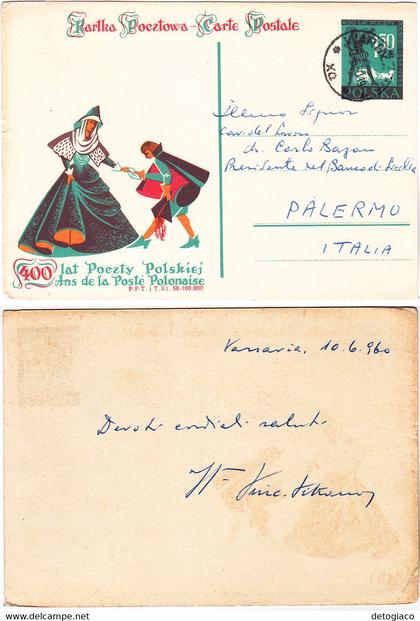 Kartka Pocztowa - Carte Postale
400 LAT POCZTY
50
POLSKA
Illmo Signor
Cav. del Lavoro
dr. Carlo Bazan
Presidente del Banco di Sicilia
PALERMO
ITALIA
400 lat Poczty Polskiej
Ans de la Poste Polonaise
P.P.T. i T. XI. 58-100.000
Varsavia, 10.6.960
Devoti cordiali saluti
delcampe.net
detogiaco